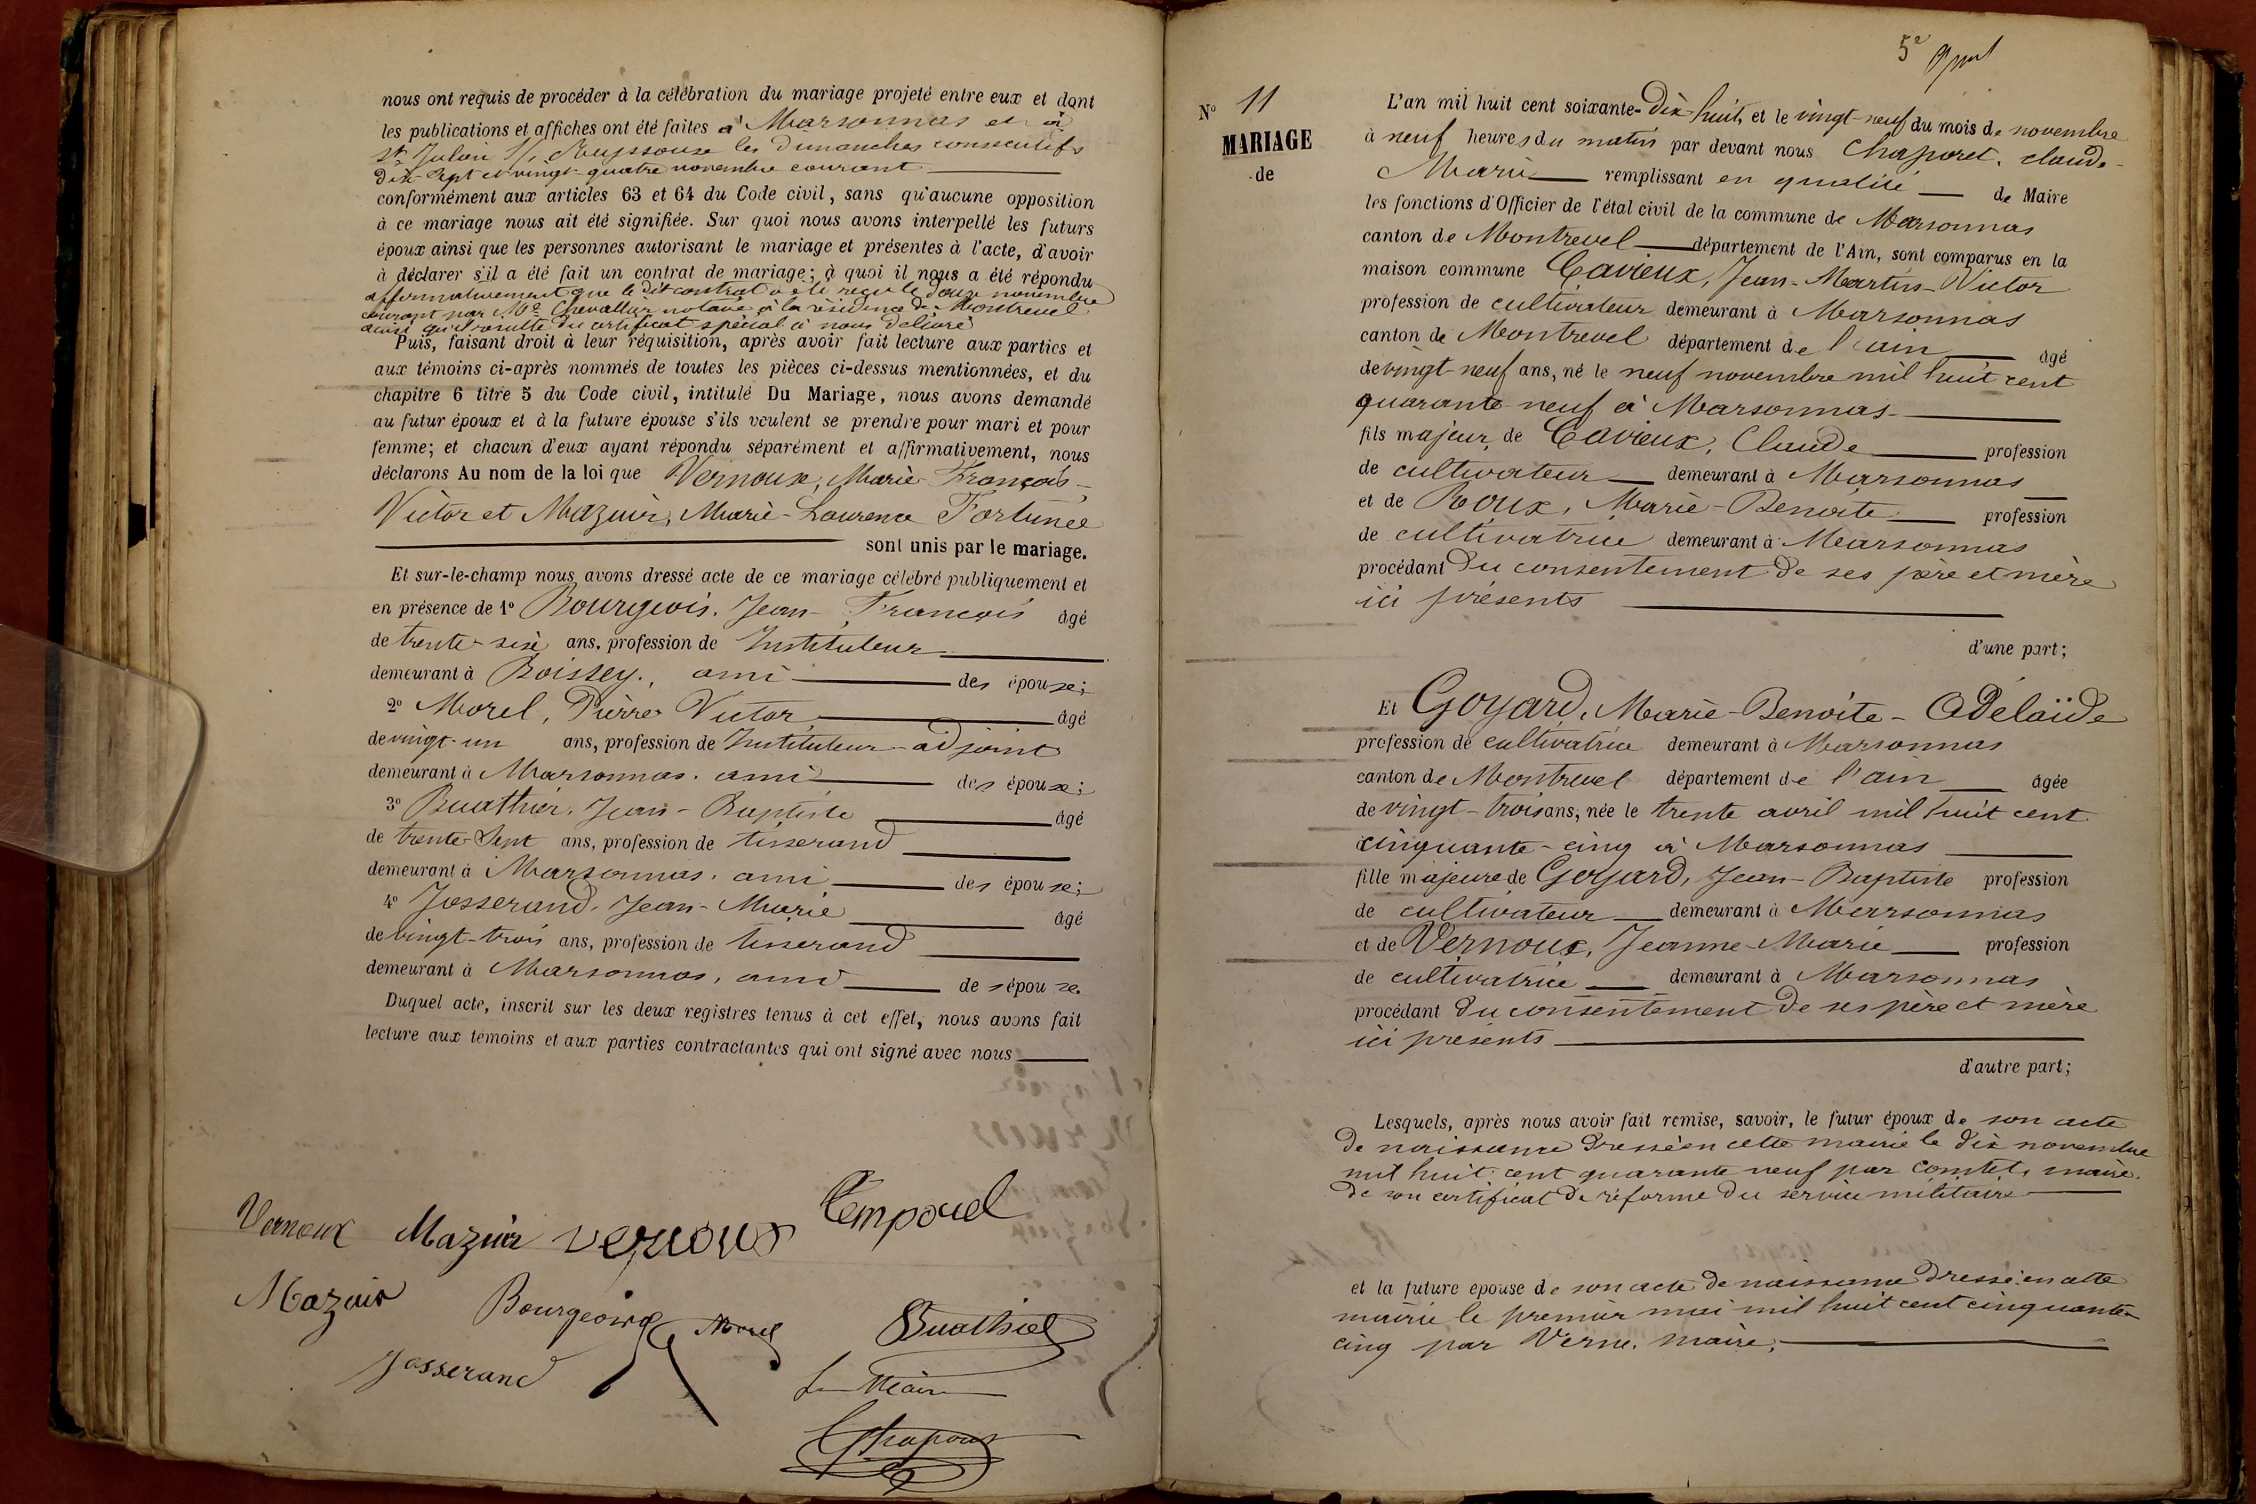 nous ont requis de procéder à la célébration du mariage projeté entre eux et dont
les publications et affiches ont été faites à Marsonnas et à
St Julien S/ Reyssouze les dimanches consécutifs
dix-sept et vingt-quatre novembre courant
conformément aux articles 63 et 64 du Code civil, sans qu'aucune opposition
à ce mariage nous ait été signifiée. Sur quoi nous avons interpellé les futurs
époux ainsi que les personnes autorisant le mariage et présentes à l'acte, d'avoir
à déclarer s'il a été fait un contrat de mariage; à quoi il nous a été répondu
affirmativement que le dit contrat a été reçu le douze novembre
courant par Me Chevallier notaire à la résidence de Montrevel
ainsi qu'il résulte du certificat spécial à nous délivré
Puis, faisant droit à leur réquisition, après avoir fait lecture aux parties et
aux témoins ci-après nommés de toutes les pièces ci-dessus mentionnées, et du
chapitre 6 titre 5 du Code civil, intitulé Du Mariage, nous avons demandé
au futur époux et à la future épouse s'ils veulent se prendre pour mari et pour
femme; et chacun d'eux ayant répondu séparément et affirmativement, nous
déclarons Au nom de la loi que Vernoux, Marie François-
Victor et Mazuir, Marie-Laurence Fortunée
sont unis par le mariage.
Et sur-le-champ nous avons dressé acte de ce mariage célébré publiquement et
en présence de 1º Bourgeois, Jean-François âgé
de trente-six ans, profession de Instituteur
demeurant à Boissey, ami des épouse;
2º Morel, Pierre Victor âgé
de vingt-un ans, profession de Instituteur-adjoint
demeurant à Marsonnas, ami des épouse;
3º Buathier, Jean-Baptiste âgé
de trente-sept ans, profession de tisserand
demeurant à Marsonnas, ami des épouse;
4º Josserand, Jean-Marie âgé
de vingt-trois ans, profession de tisserand
demeurant à Marsonnas, ami des épouse.
Duquel acte, inscrit sur les deux registres tenus à cet effet, nous avons fait
lecture aux témoins et aux parties contractantes qui ont signé avec nous
Vernoux Mazuir vernoux Temporel
Mazuir Bourgeois Morel Buathier
Josserand Le Maire
Chaporet
5e
Nº 11
MARIAGE
de
L'an mil huit cent soixante-dix-huit, et le vingt-neuf du mois de novembre
à neuf heures du matin par devant nous Chaporet, Claude-
Marie remplissant en qualité de Maire
les fonctions d'Officier de l'état civil de la commune de Marsonnas
canton de Montrevel département de l'Ain, sont comparus en la
maison commune Cavieux, Jean-Martin-Victor
profession de cultivateur demeurant à Marsonnas
canton de Montrevel département de l'ain âgé
de vingt-neuf ans, né le neuf novembre mil huit cent
quarante-neuf à Marsonnas
fils majeur de Cavieux, Claude profession
de cultivateur demeurant à Marsonnas
et de Roux, Marie-Benoite profession
de cultivatrice demeurant à Marsonnas
procédant du consentement de ses père et mère
ici présents
d'une part;
Et Goyard, Marie-Benoite-Adélaïde
profession de cultivatrice demeurant à Marsonnas
canton de Montrevel département de l'ain âgée
de vingt-trois ans, née le trente avril mil huit cent
cinquante-cinq à Marsonnas
fille majeure de Goyard, Jean-Baptiste profession
de cultivateur demeurant à Marsonnas
et de Vernoux, Jeanne-Marie profession
de cultivatrice demeurant à Marsonnas
procédant du consentement de ses père et mère
ici présents
d'autre part;
Lesquels, après nous avoir fait remise, savoir, le futur époux de son acte
de naissance dressé en cette mairie le dix novembre
mil huit cent quarante neuf par Comtet, maire.
de son certificat de réforme du service militaire
et la future épouse de son acte de naissance dressé en cette
mairie le premier mai mil huit cent cinquante-
cinq par Verne, maire;